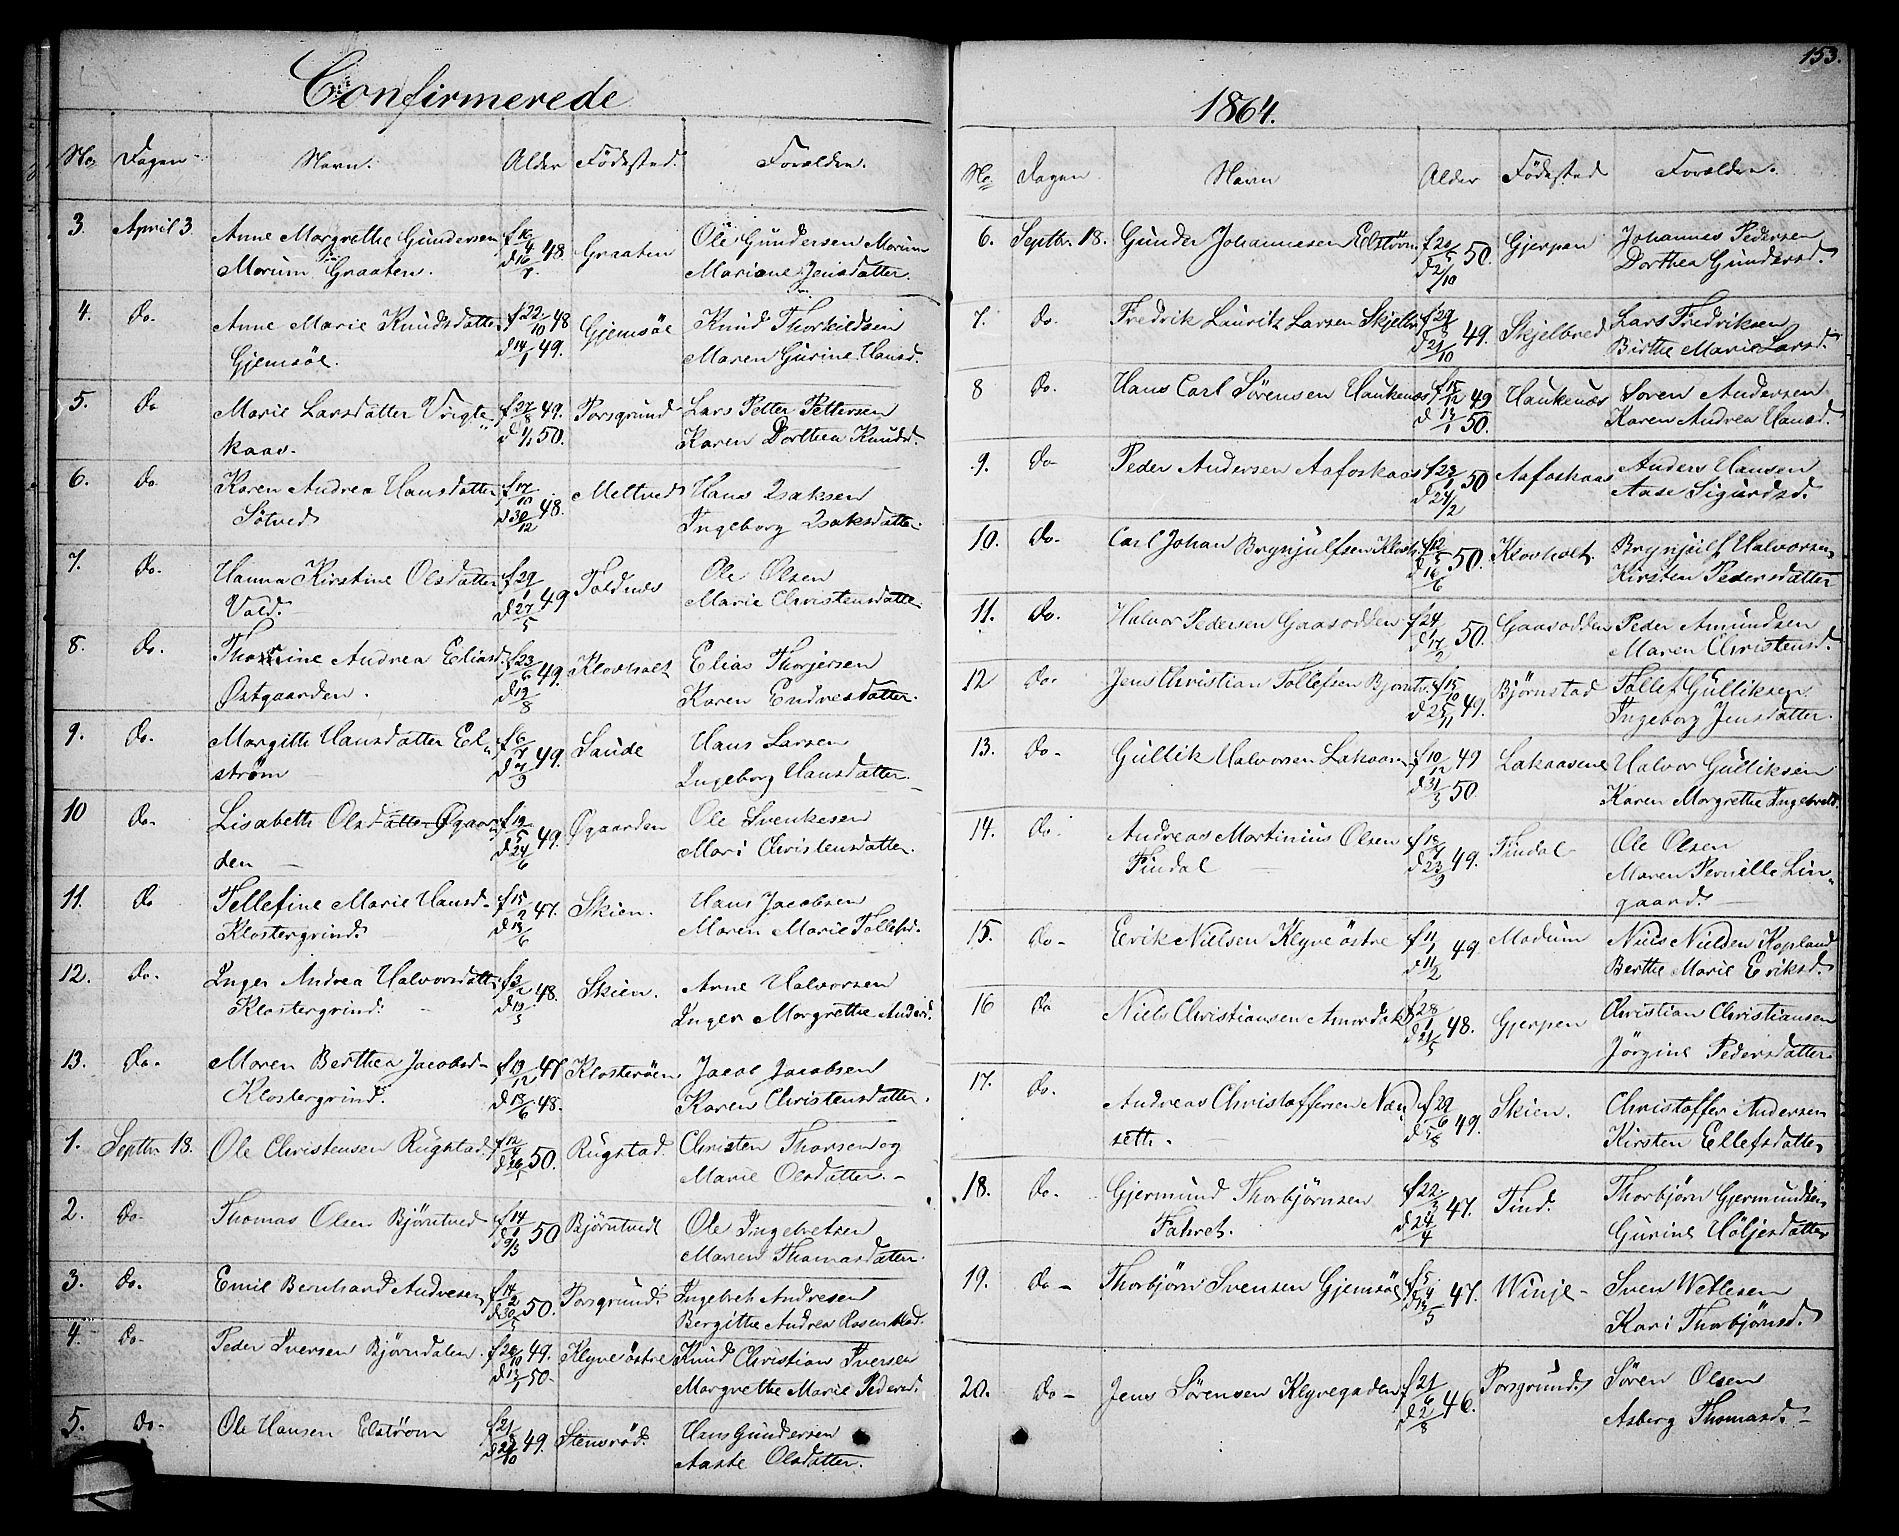 Confirmerede
No Dagen Navn. Alder Födested. Forældre.
3. April 3. Anne Margrethe Gundersen f 16/4 48 Graaten Ole Gundersen Morum
Morum Graaten. d 16/7 Mariane Jensdatter.
4. Do. Anne Marie Knudsdatter f 22/10 48 Gjemsöe Knud Thorkildsen
Gjemsöe. d 14/1 49. Maren Gurine Hansd.
5. Do Marie Larsdatter Vrigte f 27/8 49. Porsgrund Lars Petter Pettersen
kaas. d 1/1 50. Karen Dorthea Knudsd.
6. Do Karen Andrea Hansdatter f 17/10 48. Meltved Hans Isaksen
Sötved d 30/12 Ingeborg Isaksdatter
7. Do. Hanna Kirstine Olsdatter f 29/1 49 Foldnes Ole Olsen
Vold. d 27/5 Marie Christensdatter
8. Do. Thorine Andrea Eliasd. f 23/6 49. Klovholt Elias Thorjersen
Østgaarden. d 19/8 Karen Endresdatter.
9. Do. Margith Hansdatter El f 6/7 49. Saude Hans Larsen
ström d 7/9 Ingeborg Hansdatter.
10 Do. Lisabeth Olsdatter Øgaar f 19/5 49. Øgaarden Ole Svenkesen
den d 24/6 Mari Christensdatter.
11. Do Tellefine Marie Hansd. f 15/2 47. Skien. Hans Jacobsen
Klostergrind. d 13/6 Maren Marie Tollefsd.
12. Do. Inger Andrea Halvorsdatter f 3/2 48. Skien. Arne Halvorsen
Klostergrind. d 13/5 Inger Morgrethe Andersd.
13. Do. Maren Berthea Jacobsd f 19/12 47 Klosteröen Jacob Jacobsen
Klostergrind. d 18/6 48. Karen Christensdatter.
1. Septbr 18. Ole Christensen Rugstad f 12/4 50. Rugstad. Christen Thorsen og
Marie Olsdatter.
2. Do. Thomas Olsen Björntved f 14/1 50 Björntvedt Ole Ingebretsen
d 9/3 Maren Thomasdatter.
3. Do. Emil Bernhard Andresen f 14/2 50. Porsgrund. Ingebret Andresen
d 30/5 Bergithe Andrea Rosenblad.
4. Do. Peder Iversen Björndalen. f 26/10 49. Klyve östre Knud Christian Iversen
d 13/1 50. Margrethe Marie Pedersd.
5. Do. Ole Hansen Elström f 21/8 49. Stensröd. Hans Gundersen
d 22/10 Aaste Olsdatter.
153.
1864.
No Dagen Navn Alder Födested Forældre.
6. Septbr. 18. Gunder Johannesen Elström f 20/5 50. Gjerpen Johannes Pedersen
d 2/10 Dorthea Gundersd.
7. Do. Fredrik Lauritz Larsen Skjelbr f 29/8 49. Skjelbred Lars Fredriksen
d 21/10 Birthe Marie Larsd.
8 Do. Hans Carl Sörensen Haukenæs f 15/12 49 Haukenæs Soren Andersen
d 13/1 50. Karen Andrea Hansd.
9. Do Peder Andersen Aafoskaas f 23/1 50 Aafoskaas Anders Hansen
d 24/2 Aase Sigurdsd.
10. Do. Carl Johan Brynjulfsen Klovh. f 12/5 50. Klovholt. Brynjulf Halvorsen
d 16/6 Kirsten Pedersdatter
11. Do. Halvor Pedersen Gaasodden f 24/1 50. Gaasodden Peder Amundsen
d 17/2 Maren Christensd.
12 Do. Jens Christian Tollefsen Bjornst. f 15/10 Björnstad Tollef Gulliksen
d 25/11 49. Ingeborg Jensdatter.
13. Do. Gullik Halvorsen Lakaasen f 10/12 49 Lakaasene Halvor Gulliksen
d 31/3 50. Karen Morgrethe Ingebretsd.
14. Do. Andreas Martinius Olsen f 15/7 49. Findal Ole Olsen
Findal d 23/9 Maren Pernille Lin
gaard.
15. Do Eerik Nielsen Klyve östre f 11/1 49 Modum Niels Nielsen Kopland
d 11/2 Berthe Marie Eriksd.
16 Do Niels Christiansen Amordak f 28/1 48. Gjerpen Christian Christiansen
d 21/5 Jörgine Pedersdatter
17. Do. Andreas Christoffersen Næn f 29/6 49. Skien. Christoffer Andersen
seth. d 5/8 Kirsten Ellefsdatter
18. Do. Gjermund Thorbjörnsen f 22/3 47. Tind. Thorbjörn Gjermundsen
Fahret. d 24/4 Gurine Höljesdatter
19. Do Thorbjörn Svensen Gjemsöe f 5/4 47. Winje Sven Wetlesen
d 13/5 Kari Thorbjörnsd.
20. Do Jens Sörensen Klyvegaden f 21/6 46. Porsgrund. Sören Olsen
d 2/8 Asberg Thomasd.